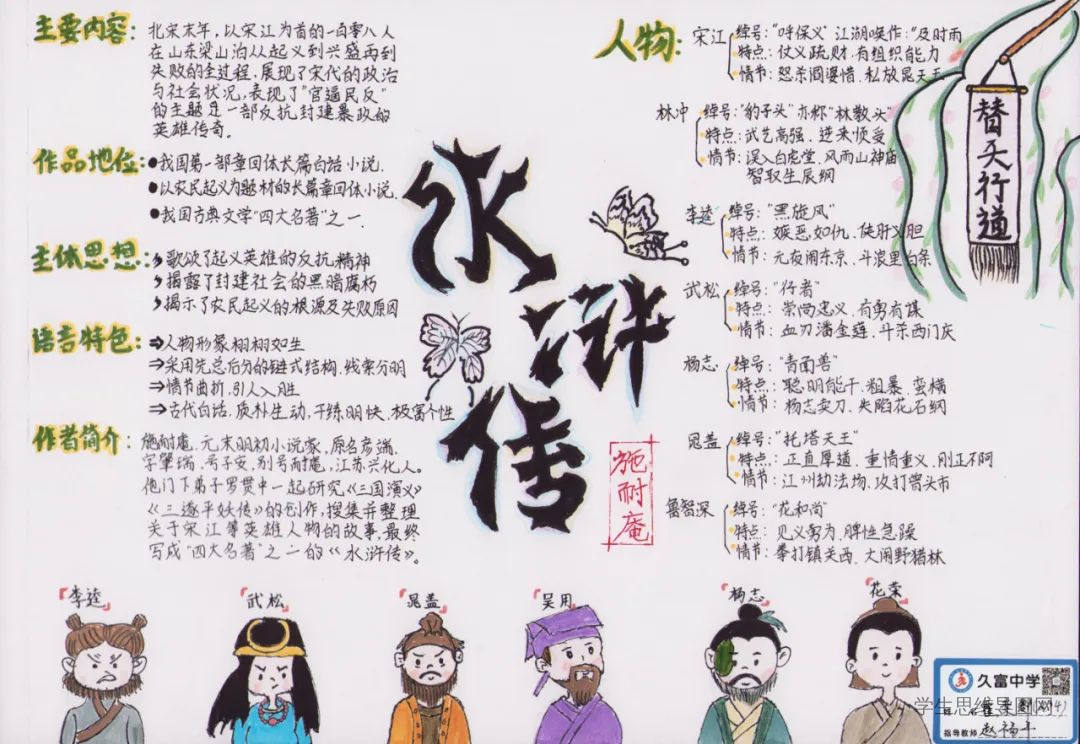 主要内容:
北宋末年,以宋江为首的一百零八人
在山东梁山泊从起义到兴盛再到
失败的全过程,展现了宋代的政治
与社会状况,表现了"官逼民反"
的主题是一部反抗封建暴政的
英雄传奇。
作品地位:
●我国第一部章回体长篇白话小说.
●以农民起义为题材的长篇章回体小说.
●我国古典文学"四大名著"之一.
主体思想:
歌颂了起义英雄的反抗精神
揭露了封建社会的黑暗腐朽
揭示了农民起义的根源及失败原因
语言特色:
⇒人物形象栩栩如生
⇒采用先总后分的链式结构.线索分明
⇒情节曲折,引人入胜
⇒古代白话.质朴生动.干练明快、极富个性
作者简介:
施耐庵.元末明初小说家,原名彦端.
字肇瑞.号子安,别号耐庵,江苏兴化人。
他门下弟子罗贯中一起研究《三国演义》
《三遂平妖传》的创作,搜集并整理
关于宋江等英雄人物的故事,最终
写成"四大名著"之一的《水浒传》.
水浒传
施耐庵
人物:
宋江
绰号:"呼保义" 江湖唤作:"及时雨
特点:仗义疏财.有组织能力
情节:怒杀阎婆惜.私放晁天王
林冲
绰号:"豹子头"亦称"林教头"
特点:武艺高强、逆来顺受
情节:误入白虎堂、风雨山神庙
智取生辰纲
李逵
绰号:"黑旋风"
特点:嫉恶如仇、侠肝义胆
情节:元夜闹东京、斗浪里白条
武松
绰号:"行者"
特点:崇尚忠义、有勇有谋
情节:血刃潘金莲、斗杀西门庆
杨志
绰号:"青面兽"
特点:聪明能干、粗暴、蛮横
情节:杨志卖刀、失陷花石纲
晁盖
绰号:"托塔天王"
特点:正直厚道、重情重义、刚正不阿
情节:江州劫法场、攻打曾头市
鲁智深
绰号:"花和尚"
特点:见义勇为、脾性急躁
情节:拳打镇关西、大闹野猪林
替天行道
李逵
武松
晁盖
吴用
杨志
花荣
久富中学
指导教师 赵福平
学生思维导图网